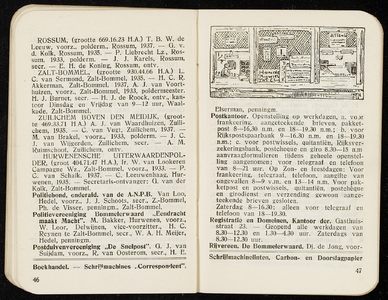 ROSSUM, (grootte 669.16.23 H.A.) T. B. W. de
Leeuw, voorz., polderm., Rossum, 1937. — G. v.
d. Kolk, Rossum, 1935. — P. Liebrecht Lz., Rossum, 1933, polderm. — J. J. Karels, Rossum,
secr. — E. H. de Koning, Rossum, ontv.
ZALT-BOMMEL, (grootte 930.44.66 H.A.) L.
C. van Sermond, Zalt-Bommel, 1935. — H. C. R.
Akkerman, Zalt-Bommel, 1937, A. J. van Voorthuizen, voorz., Zalt-Bommel, 1933, poldermeester.
H. J. Barnet, secr. — H. J. de Roock, ontv., kantoor Dinsdag en Vrijdag van 9—12 uur, Waalkade, Zalt-Bommel.
ZUILICHEM BOVEN DEN MEIDIJK,
J. C. van Waardhuizen, Zuilichem, 1935. — C. van Vugt, Zuilichem, 1937. —
M. van Brakel, voorz., 1933, polderm. — J. C.
J. van Wijgerden, Zuilichem, secr. — A. M.
Zuilichem, ontv.
HURWENENSCHE UITERWAARDENPOLDER, (groot 404.71.47 H.A.) Ir. W. van Lookeren
Campagne Wz., Zalt-Bommel, voorz., 1933. — P.
C. van Schaik, 1937. — C. Leeuwenhaag, Hurwenen, 1935, Secretaris-ontvanger: G. van der
Kolk, Zalt-Bommel.
Politiebond, onderafd. van de A.N.P.B. Van Loo,
Hedel, voorz., J. J. Schoots, secr., Z.-Bommel,
Ph. de Visser, penningm., Zalt-Bommel.
Politievereeniging Bommelerwaard „Eendracht
maakt Macht”. M. Bakker, Hurwenen, voorz.,
W. Loor, Delwijnen, vice-voorzitter, H. C.
Reynen te Zalt-Bommel, secr., W. A. H. Meijer,
Hedel, penningm.
Postduivenvereeniging „De Snelpost”. G. J. van
Suijdam, voorz., R. van Oosterom, secr., H. E.
Boekhandel. — Schrijfmachines „Correspondent”.
46
Elserman, penningm.
Postkantoor. Openstelling op werkdagen, a. voor
frankeering, aangeteekende brieven, pakketpost 8—16.30 n.m. en 18—19.30 n.m.; b. voor
Rijkspostspaarbank 9—16.30 n.m. en 18—19.30
n.m.; c. voor postwissels, quitantiën, Rijksverzekeringsbank, postcheque en giro 8.30—15 n.m.
aanvraagformulieren tijdens geheele openstelling aangenomen; voor telegraaf en telefoon
van 8—21 uur. Op Zon- en feestdagen: Voor
frankeering, aangeteekende brieven, aangifte van
ongevallen 8—9 v.m. en 18—19 n.m.; voor pakketpost en postwissels, quitantiën, postcheque
en girodienst en verzending gewone aangeteekende brieven gesloten.
Zaterdag 8—16.30; alleen voor telegraaf en
telefoon van 18—19.30.
Registratie en Domeinen, Kantoor der. Gasthuisstraat 23. — Geopend alle werkdagen van
8.30—12.30 en van 2—4 uur. Zaterdags van
8.30—12.30 uur.
Rijveren. De Bommelerwaard. Dj. de Jong, voor-
Schrijfmachinelinten, Carbon- en Doorslagpapier
47